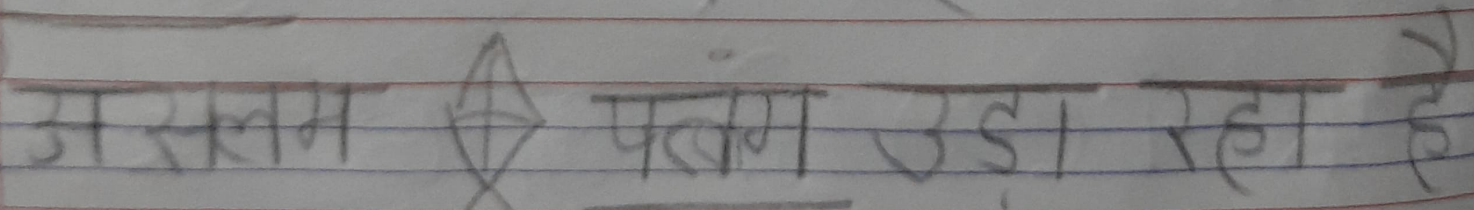 असलम पतंग उड़ा रहा है